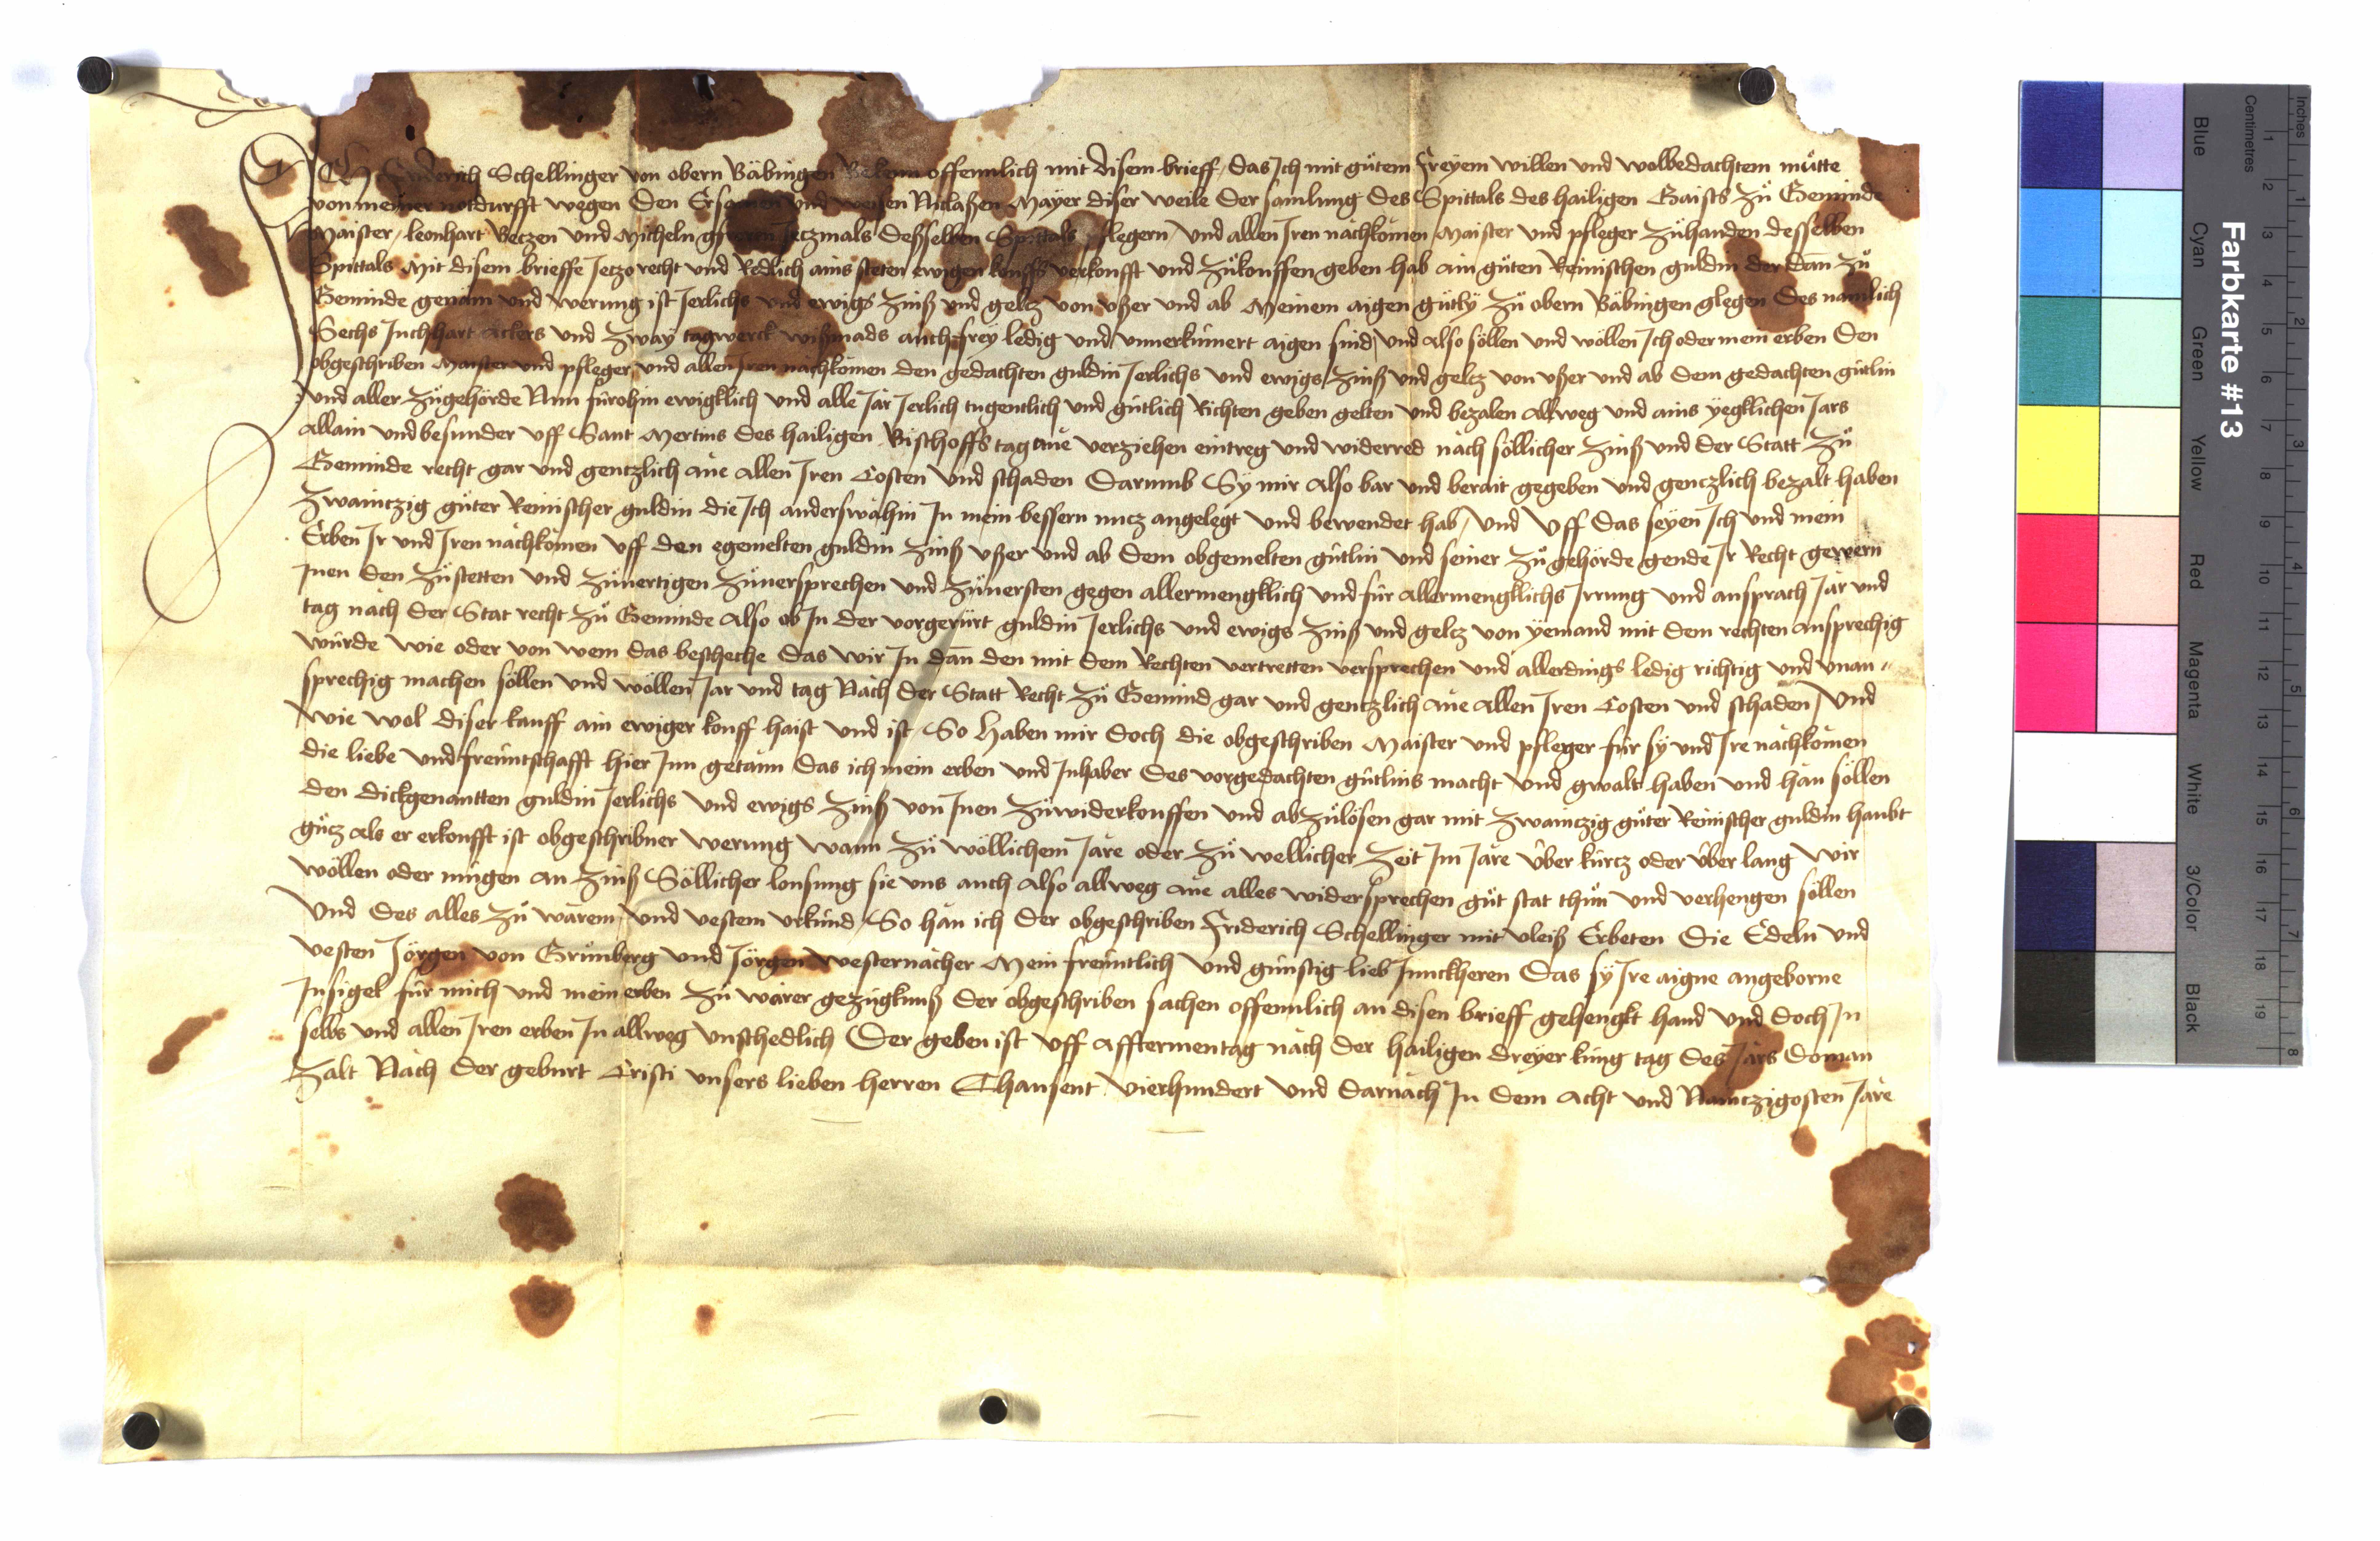 Ich Friderich Schellinger von obern Bäbingen Bekenn offennlich mit disem brieff, das Ich mit gůtem freyem willen und wolbedachtem můtte
von meiner notdurfft wegen den Ersamen und weisen Niclaßen Mayer diser weile der samlung des Spittals des hailigen Gaists zů Geminde
Maister, leonhart Betzen und Micheln Jeczmals desselben Spittals pflegern, und allen Jren nächkomen Maister und pfleger zůhanden desselben
Spittals Mit disem brieffe Jeczo recht und Redlich ains steten ewigen kouffs verkoufft und zůkouffen geben hab ain gůten Reinischen guldin der dan zů
Geminde genäm und werung ist Jerlichs und ewigs zinß und gelcz von vßer und ab Meinem aigen gůtly zů obern Bäbingen glegen des namlich
Sechs Juchhart ackers und zway tagwerck wißmads auch frey ledig und unnerkümert aigen sind, und also söllen und wöllen Ich oder mein erben den
obgeschriben Maister und pfleger, und allen Jren nächkomen den gedachten guldin Jerlichs und ewigs zinß und gelcz von vßer und ab dem gedachten gůtlin
und aller zůgehörde Nun fürohin ewigklich und alle Jar Jerlich tugentlich und gůtlich Richten geben gelten und bezalen allweg und ains yegklichen Jars
allain und besunder uff Sant Mertins des hailigen Bischoffs tag äne verziehen eintreg und widerred näch söllicher zinß und der Statt zů
Geminde recht gar und gentzlich äne allen Jren Costen und schaden Darumb Sy mir also bar und berait gegeben und genczlich bezalt haben
zwainczig gůter Reinischer guldin die Ich anderswähin In mein bessern nucz angelegt und bewendet hab, und Uff das seyen Ich und mein
Erben Jr und Jren nächkomen uff den egemelten guldin zinß vßer und ab dem obgemelten gůtlin und seiner zůgehörde gende Jr Recht gewern
Jnen den zůstetten und zůuertigen zůuersprechen und zůuersten gegen allermengklich und für allermengklichs Jrrung und ansprach Jär und
tag näch der Stat recht zů Geminde also ob Jn der vorgerürt guldin Jerlichs und ewigs zinß und gelcz von yemand mit dem rechten ansprechig
würde wie oder von wem das bescheche das wir Jn dan den mit dem Rechten vertretten versprechen und allerdings ledig richtig und vnan-
sprechig machen söllen und wöllen Jar und tag Näch der Statt Recht zů Gemind gar und gentzlich äne allen Jren Costen und schaden, Und
wie wol diser kauff ain ewiger kouff haist und ist So haben mir doch die obgeschriben Maister und pfleger für sy und Jre nächkomen
die liebe und freuntschafft hier Jnn getänn das ich mein erben und Jnhaber des vorgedachten gůtlins macht und gwalt haben und hän söllen
den dickgenantten guldin Jerlichs und ewigs zinß von Jnen zůwiderkouffen und abzůlösen gar mit zwainczig gůter Reinischer guldin haubt
gůcz als er erkoufft ist obgeschribner werung wann zů wöllichem Järe oder zů wellicher zeit Jm Järe Uber kurcz oder Uber lang wir
wöllen oder mügen än zinß Söllicher lousung sie uns auch also allweg äne alles widersprechen gůt stat thůn und verhengen söllen
Und des alles zů wärem und vestem vrkünd, So hän ich der obgeschriben Friderich Schellinger mit vleiß Erbeten die Edeln und
vesten Jörgen von Grünberg und Jörgen westernächer Mein freuntlich und günstig lieb Junckheren Das sy Jre aigne angeborne
Jnsigel für mich und mein erben zů wärer gezügknuß der obgeschriben sachen offennlich an disen brieff gehengkt hand und doch Jn
selbs und allen Jren erben Jn allweg vnschedlich Der geben ist Uff Afftermentag näch der hailigen dreyer küng tag des Järs Doman
zalt Näch der geburt Cristi unsers lieben herren Thausent vierhundert und darnäch Jn dem acht und Nainczigosten Järe
Farbkarte #13
Blue Cyan Green Yellow Red Magenta White 3/Color Black
Centimetres 1 2 3 4 5 6 7 8 9 10 11 12 13 14 15 16 17 18 19
Inches 1 2 3 4 5 6 7 8